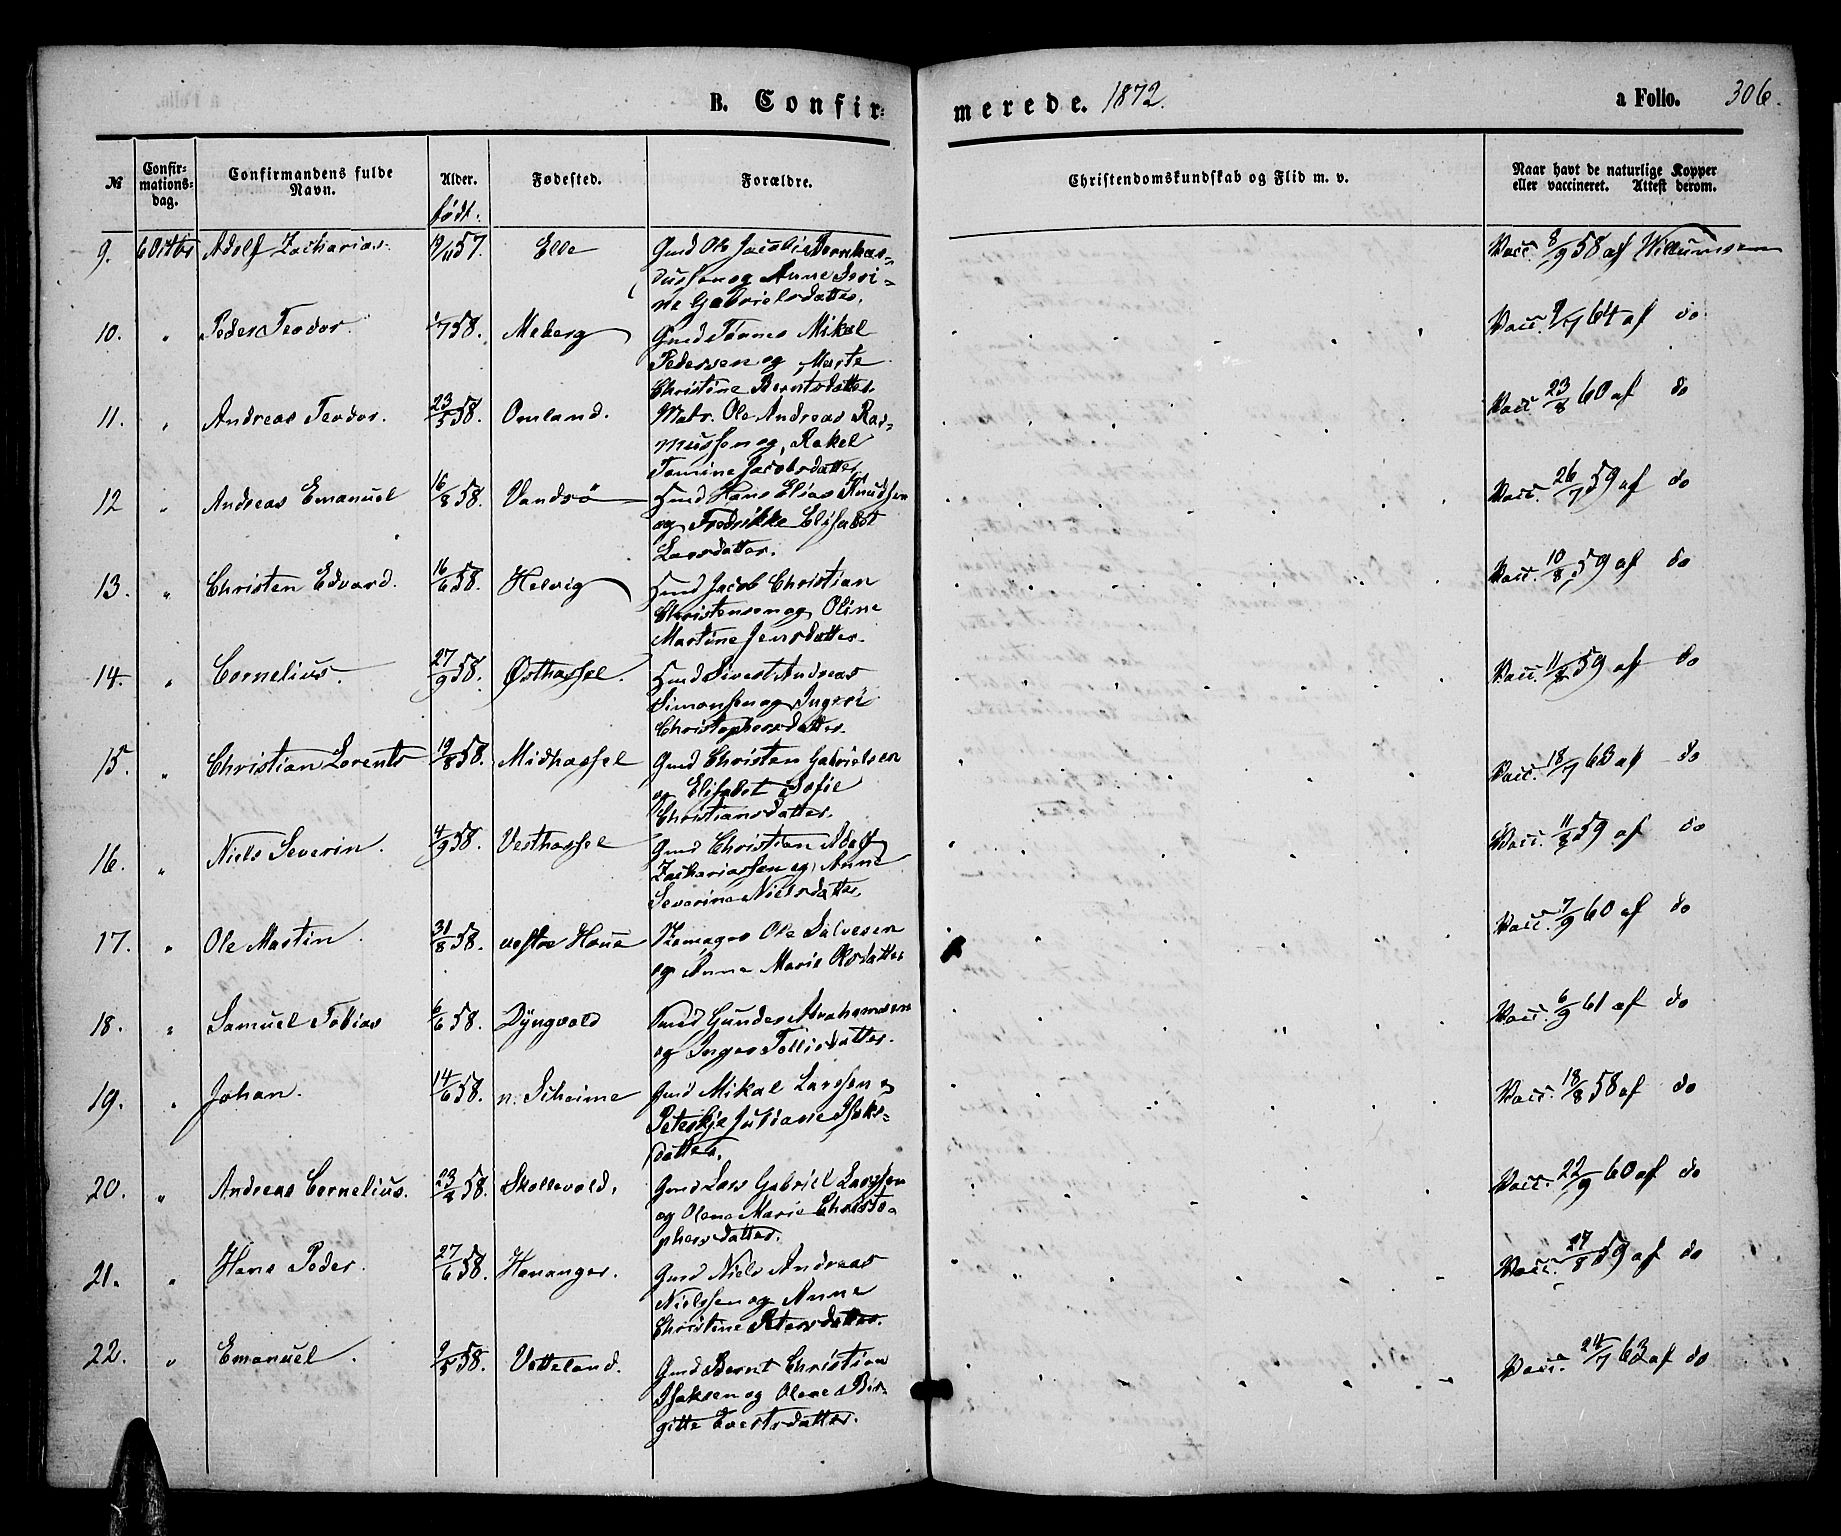 B. Confir-
merede. 1872.
a Folio. 306.
№
Confir-
mations-
dag.
Confirmandens fulde
Navn.
Alder.
født.
Fødested.
Forældre.
Christendomskundskab og Flid m. v.
Naar havt de naturlige Kopper
eller vaccineret. Attest derom.
9. 6 Octbr Adolf Zacharias. 57. Elle Gmd Ole Jacob Bernhar-
dussen og Anne Seri-
ne Gabrielsdatter.
Vacc. 8/9 58 af Willumsen
10. " Peder Teodor. 1/7 58. Meberg Gmd Tønnes Mikal
Pedersen og Marte
Christine Berntsdatter.
Vacc. 9/7 64 af do
11. " Andreas Teodor. 23/5 58. Omland. Matr. Ole Andreas Ras-
mussen og Rakel
Tomine Jacobsdatter
Vacc. 23/8 60 af do
12 " Andreas Emanuel 16/8 58. Vandsø Hmd Hans Elias Knudsen
og Fredrikke Elisabet
Larsdatter.
Vacc. 26/7 59 af do
13. " Christen Edvard. 16/6 58. Helvig Hmd Jacob Christian
Christensen og Oline
Martine Jensdatter.
Vacc. 10/8 59 af do
14. " Cornelius. 27/9 58. Østhassel. Hmd Sivert Andreas
Simonsen og Ingeri
Christophersdatter.
Vacc. 11/8 59 af do
15. " Christian Lorents 19/8 58. Midhassel Gmd Christen Gabrielsen
og Elisabet Sofie
Christiansdatter.
Vacc. 18/7 63 af do
16. " Niels Severin. 4/9 58. Vesthassel Gmd Christian Adolf
Zachariassen og Anne
Severine Nielsdatter.
Vacc. 11/8 59 af do
17. " Ole Martin. 31/8 58. vestre Haue Ole Salvesen
og Anne Marie Olsdatter
Vacc. 7/9 60 af do
18. " Samuel Tobias 6/6 58. Dyngvold Gunder Abrahamsen
og Inger Tollisdatter.
Vacc. 6/9 61 af do
19. " Johan. 14/6 58. n. Scheime Gmd Mikal Larssen og
Juliane Isaks-
datter.
Vacc. 18/8 58 af do
20. " Andreas Cornelius. 58. Skollevold. Gmd Lars Gabriel Larssen
og Olene Marie Christo-
phersdatter.
Vacc. 22/9 60 af do
21. " Hans Peder. 27/6 58. Hananger. Gmd Niels Andreas
Nielssen og Anne
Christine Petersdatter.
Vacc. 27/8 59 af do
22. " Emanuel. 9/5 58. Vetteland. Gmd Bernt Christian
Isaksen og Olene Bir-
gitte Evertsdatter.
Vacc. 24/7 63 af do